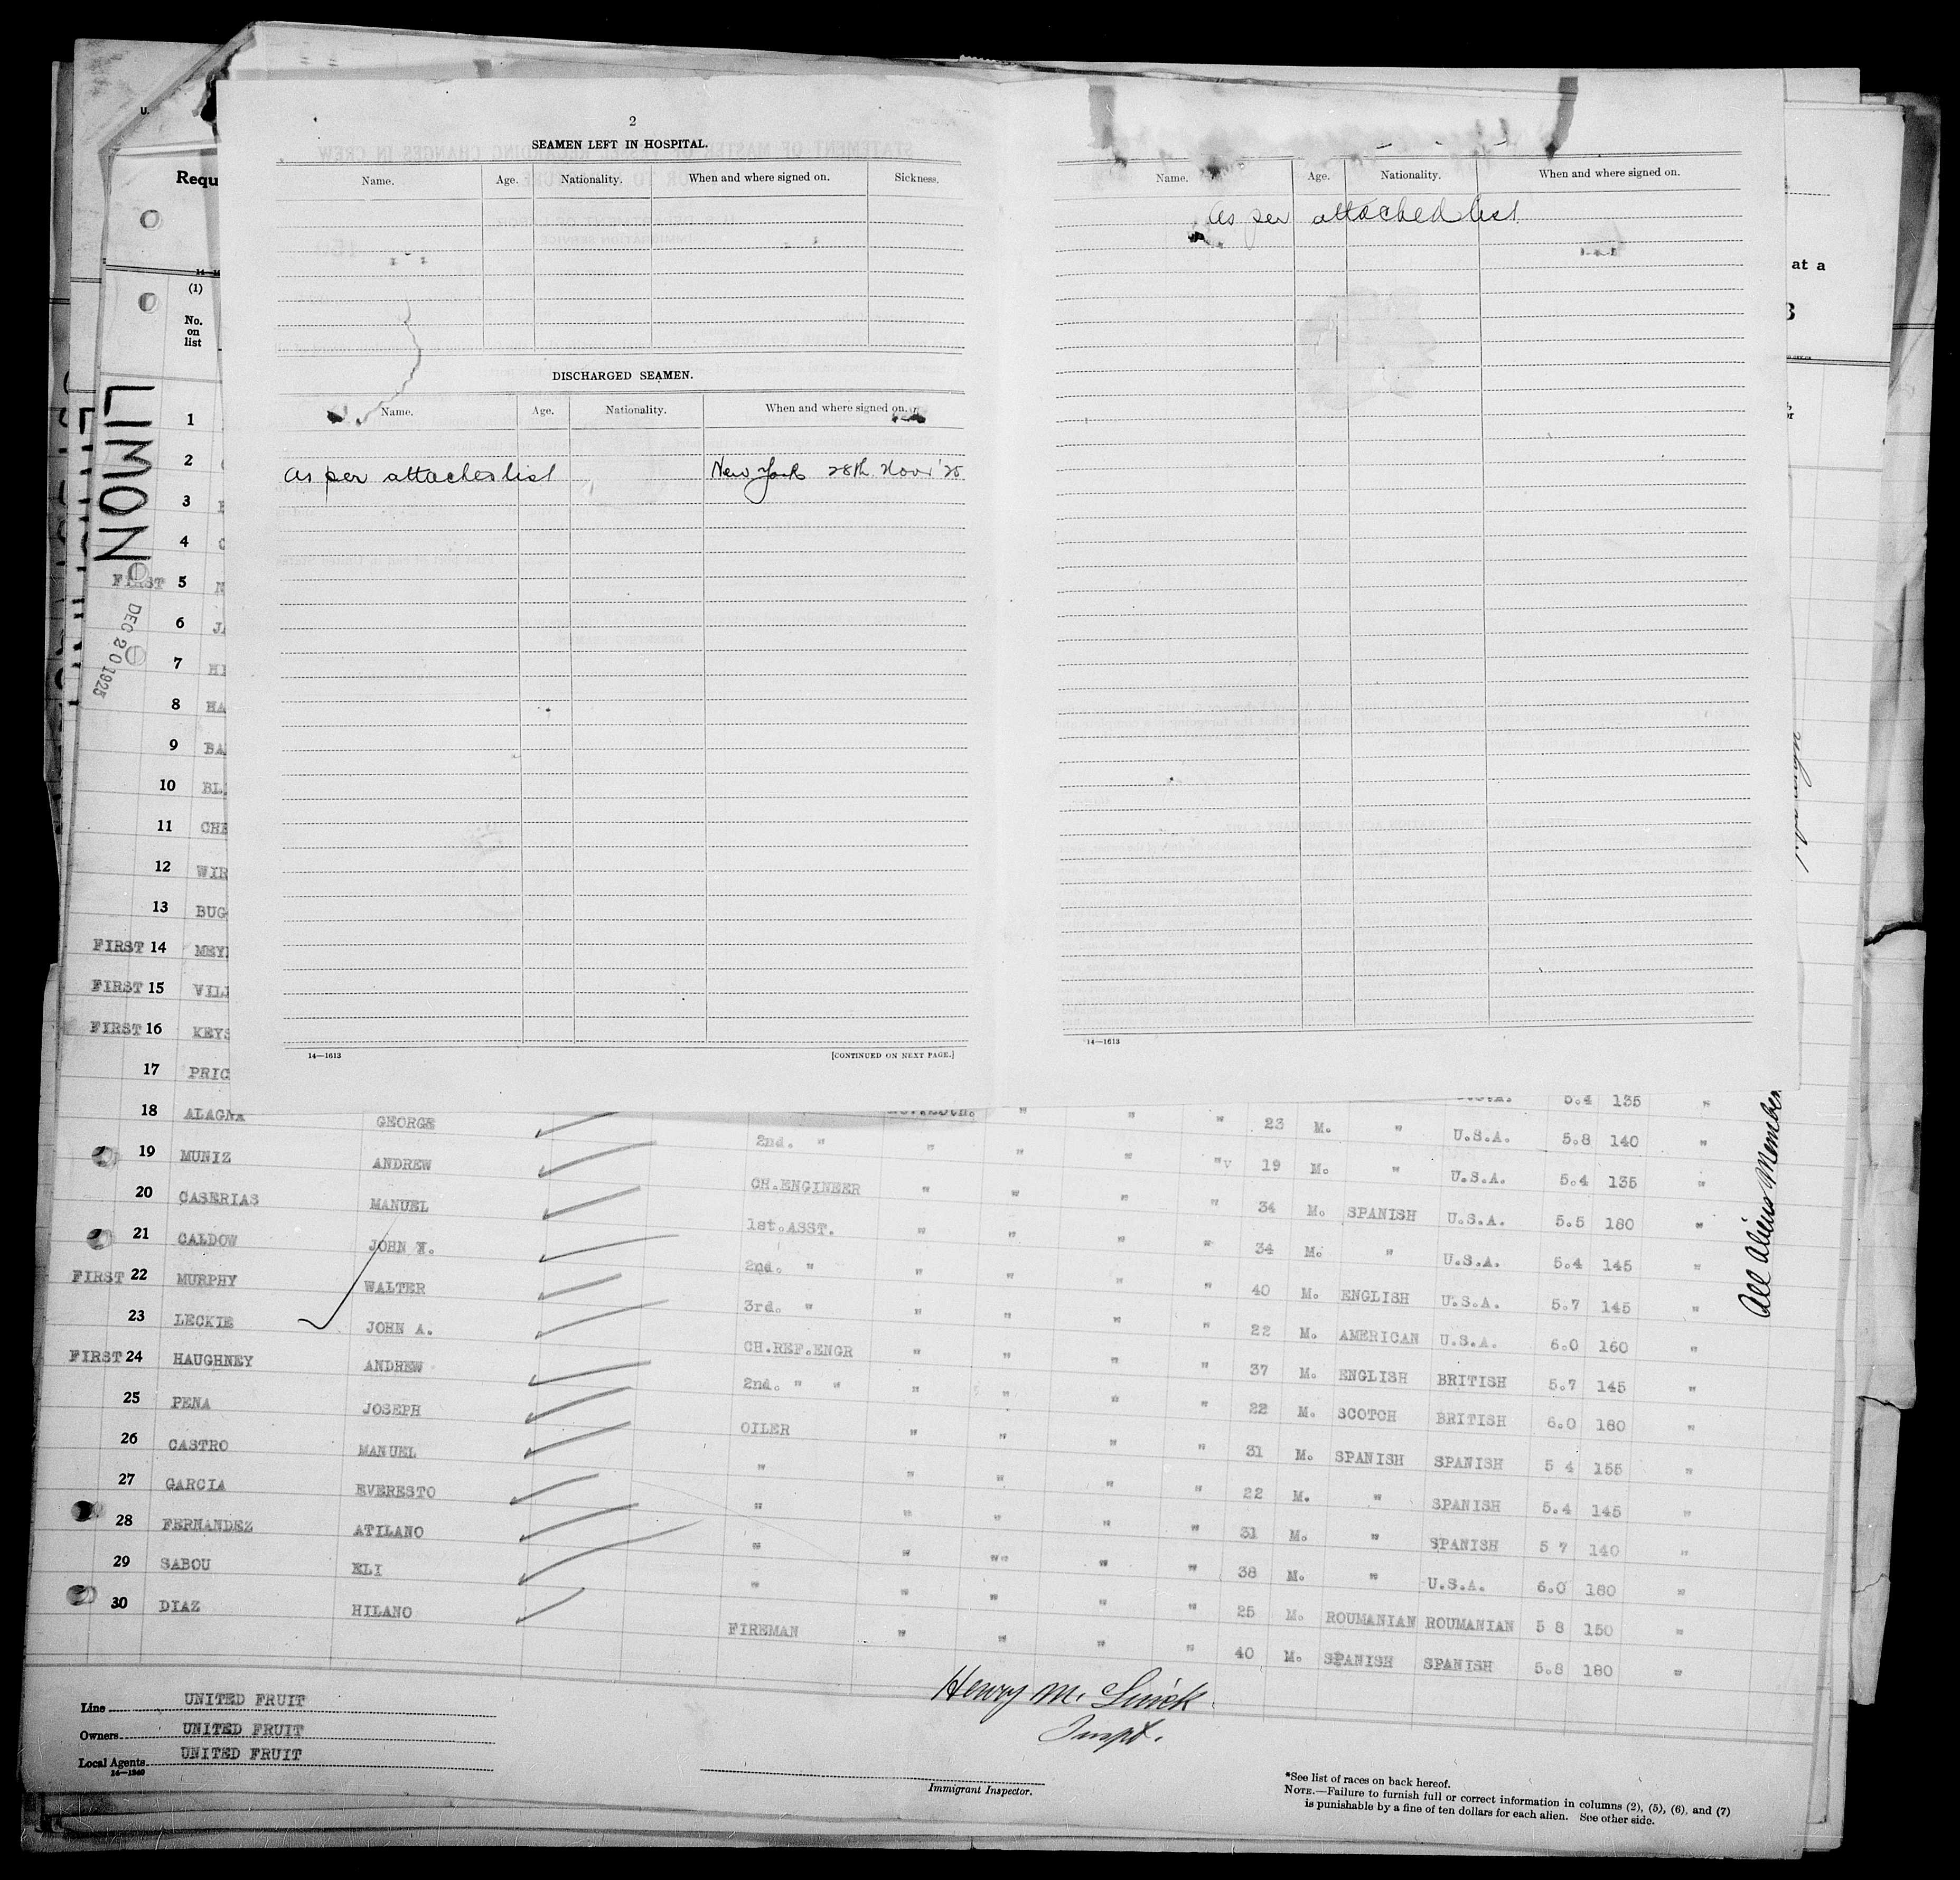 2
SEAMEN LEFT IN HOSPITAL.
Name. Age. Nationality. When and where signed on. Sickness.
DISCHARGED SEAMEN.
Name. Age. Nationality. When and where signed on.
as per attached list New York 28th Novr '25
14—1613 [CONTINUED ON NEXT PAGE.]
Name. Age. Nationality. When and where signed on.
as per attached list
14—1613
U.
Requ
at a
(1)
No. on list
LIMON
DEC 20 1925
1
2
3
4
FIRST 5
6
7
8 HA
9 BA
10 BL
11 CHE
12 WIR
13 BUG
FIRST 14 MEY
FIRST 15 VIL
FIRST 16 KEYS
17 PRIC U.S.A. 5.4 135 "
18 ALAGNA GEORGE 2nd. " " " " " 23 M. " U.S.A. 5.8 140 "
19 MUNIZ ANDREW CH.ENGINEER " " " " 19 M. " U.S.A. 5.4 135 "
20 CASERIAS MANUEL 1st.ASST. " " " " 34 M. SPANISH U.S.A. 5.5 180 "
21 CALDOW JOHN W. 2nd. " " " " " 34 M. " U.S.A. 5.4 145 "
FIRST 22 MURPHY WALTER 3rd. " " " " " 40 M. ENGLISH U.S.A. 5.7 145 "
23 LECKIE JOHN A. CH.REF.ENGR " " " " 22 M. AMERICAN U.S.A. 6.0 160 "
FIRST 24 HAUGHNEY ANDREW 2nd. " " " " " " 37 M. ENGLISH BRITISH 5.7 145 "
25 PENA JOSEPH OILER " " " " 22 M. SCOTCH BRITISH 6.0 180 "
26 CASTRO MANUEL " " " " " 31 M. SPANISH SPANISH 5 4 155 "
27 GARCIA EVERESTO " " " " " 22 M. " SPANISH 5.4 145 "
28 FERNANDEZ ATILANO " " " " " 31 M. " SPANISH 5 7 140 "
29 SABOU ELI " " " " " 38 M. " U.S.A. 6.0 180 "
30 DIAZ HILANO FIREMAN " " " " 25 M. ROUMANIAN ROUMANIAN 5 8 150 "
40 M. SPANISH SPANISH 5.8 180 "
All Aliens Member
Line UNITED FRUIT
Owners UNITED FRUIT
Local Agents UNITED FRUIT
14—1240
Henry M.
Inspt.
Immigrant Inspector.
*See list of races on back hereof.
NOTE.—Failure to furnish full or correct information in columns (2), (5), (6), and (7)
is punishable by a fine of ten dollars for each alien. See other side.